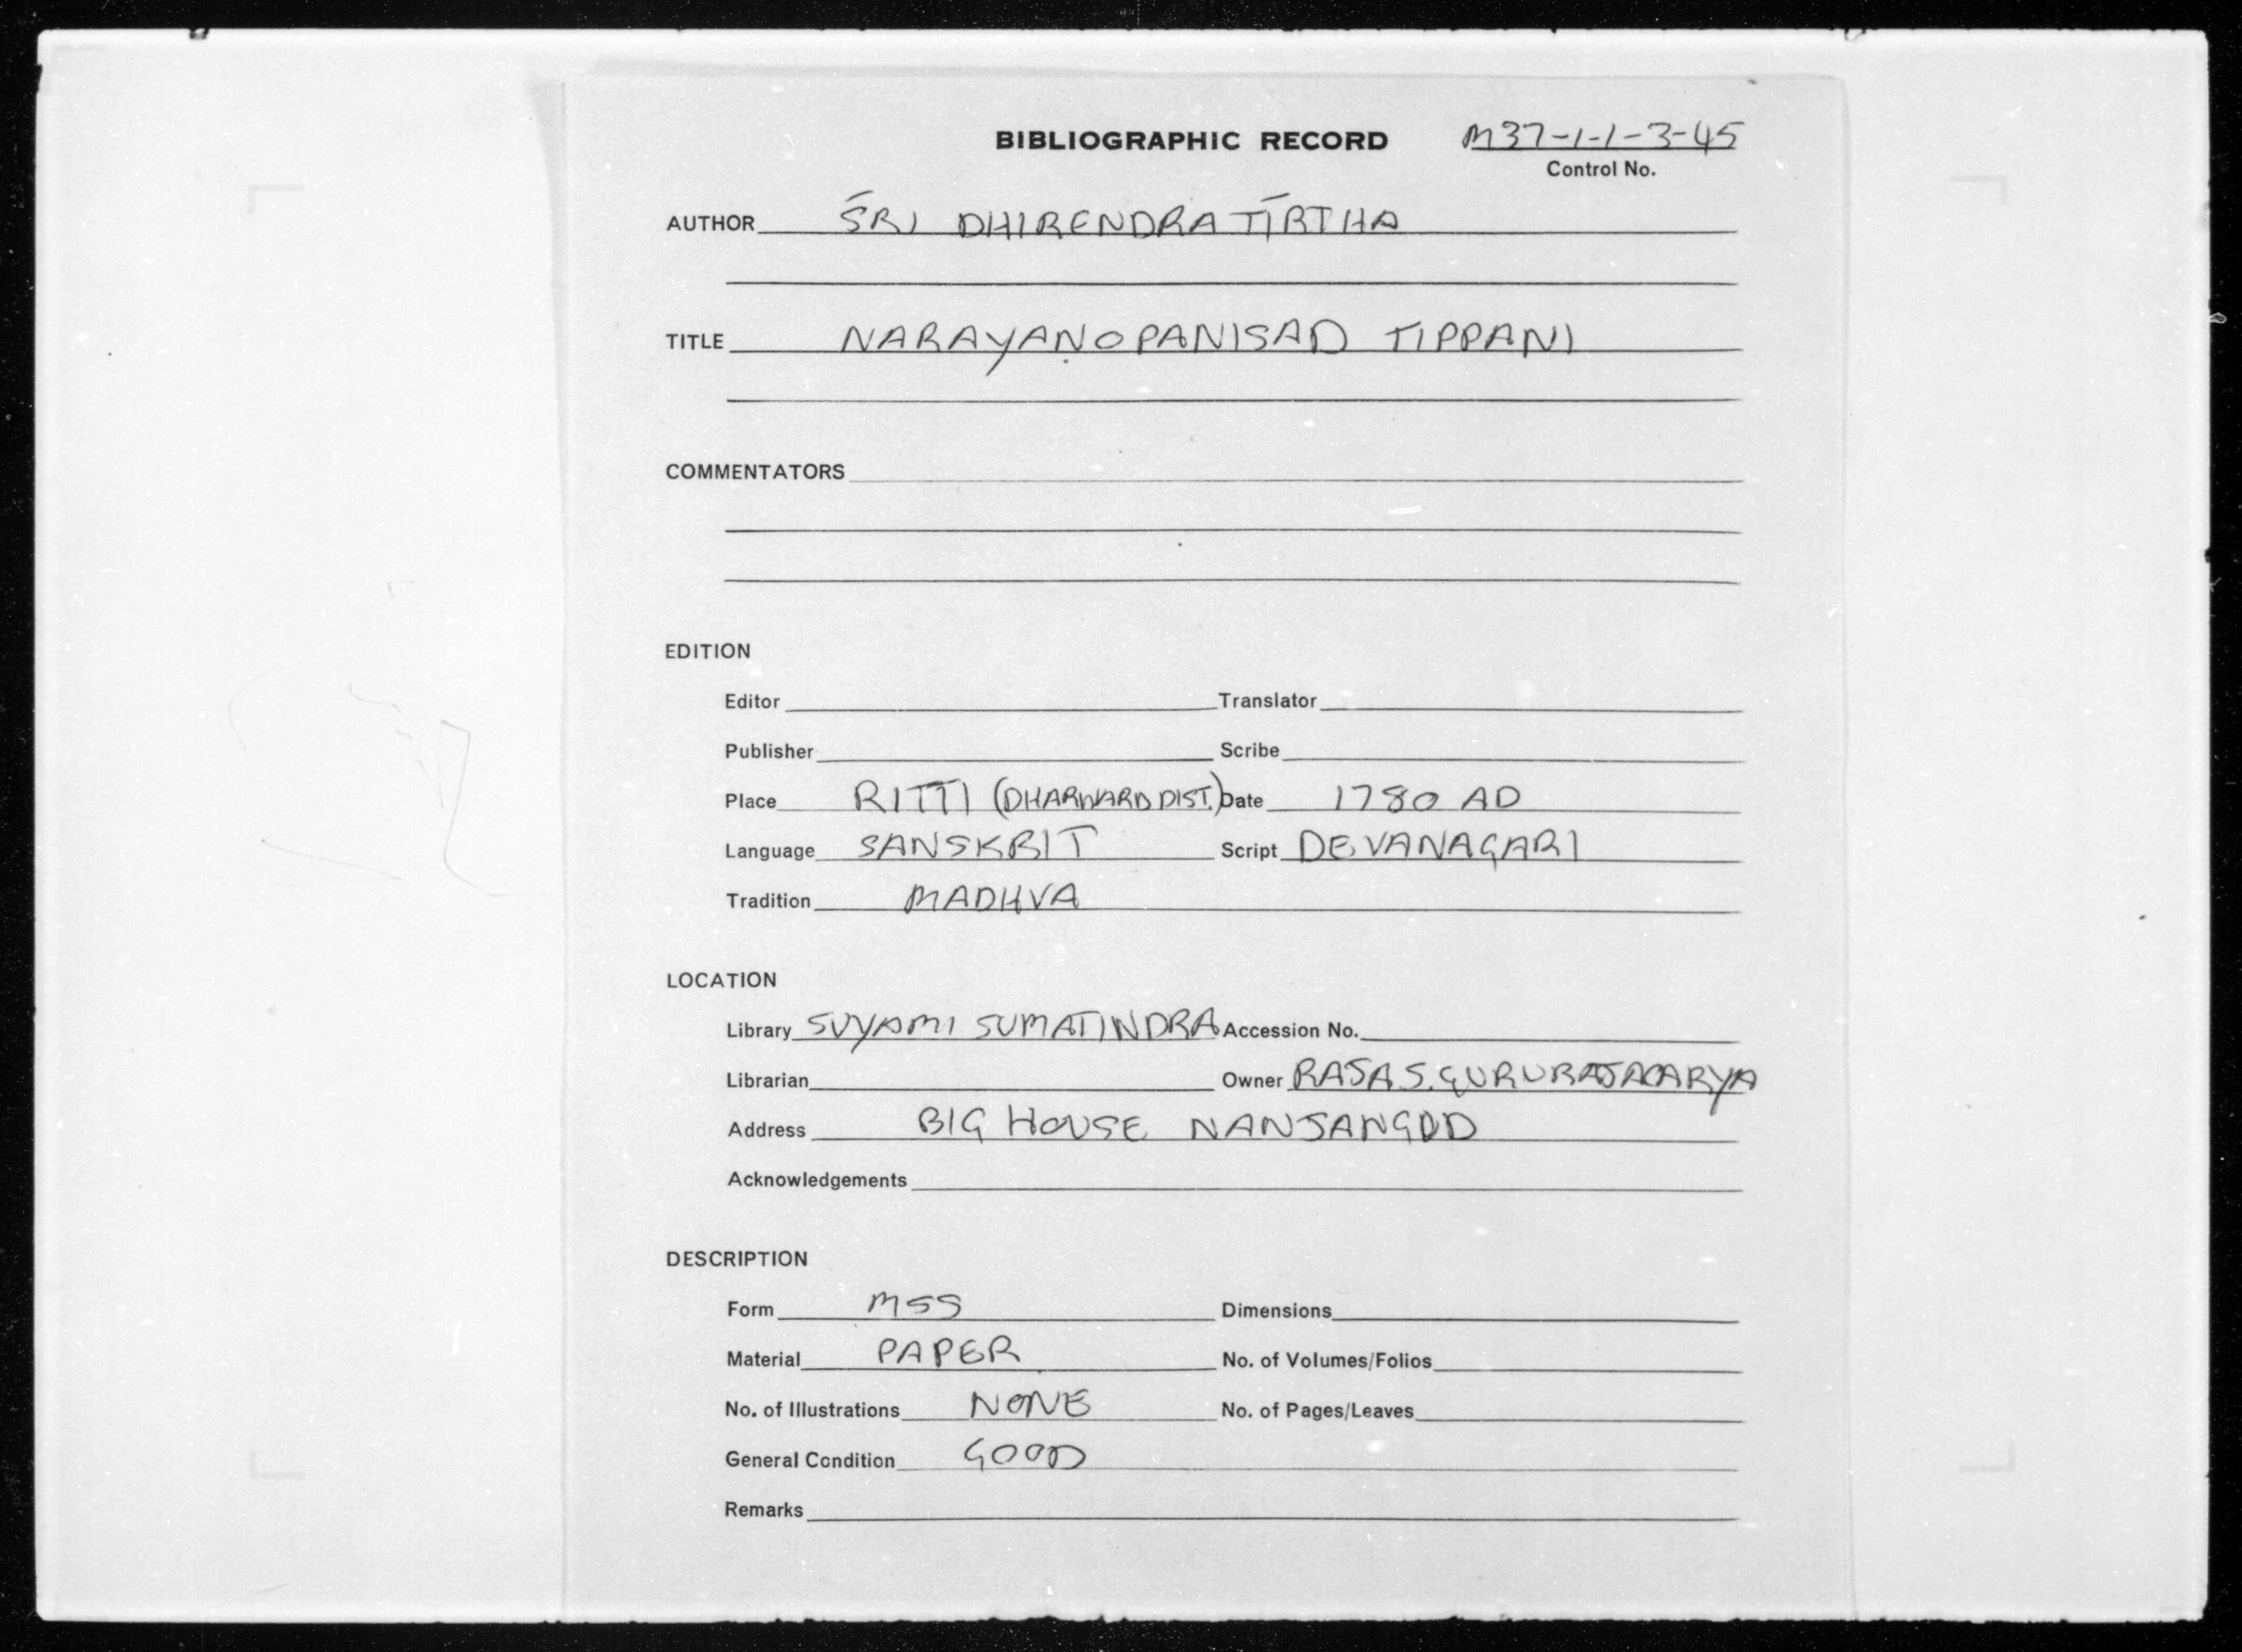 BIBLIOGRAPHIC RECORD M37-1-1-3-45
Control No.
AUTHOR ŚRI DHIRENDRA TĪRTHA
TITLE NARAYAṆOPANISAD TIPPANI
COMMENTATORS
EDITION
Editor Translator
Publisher Scribe
Place RITTI (DHARWARD DIST.) Date 1780 AD
Language SANSKRIT Script DEVANAGARI
Tradition MADHVA
LOCATION
Library SVYAMI SUMATINDRA Accession No.
Librarian Owner RAJA S. GURURAJACARYA
Address BIG HOUSE NANJANGUD
Acknowledgements
DESCRIPTION
Form MSS Dimensions
Material PAPER No. of Volumes/Folios
No. of Illustrations NONE No. of Pages/Leaves
General Condition GOOD
Remarks